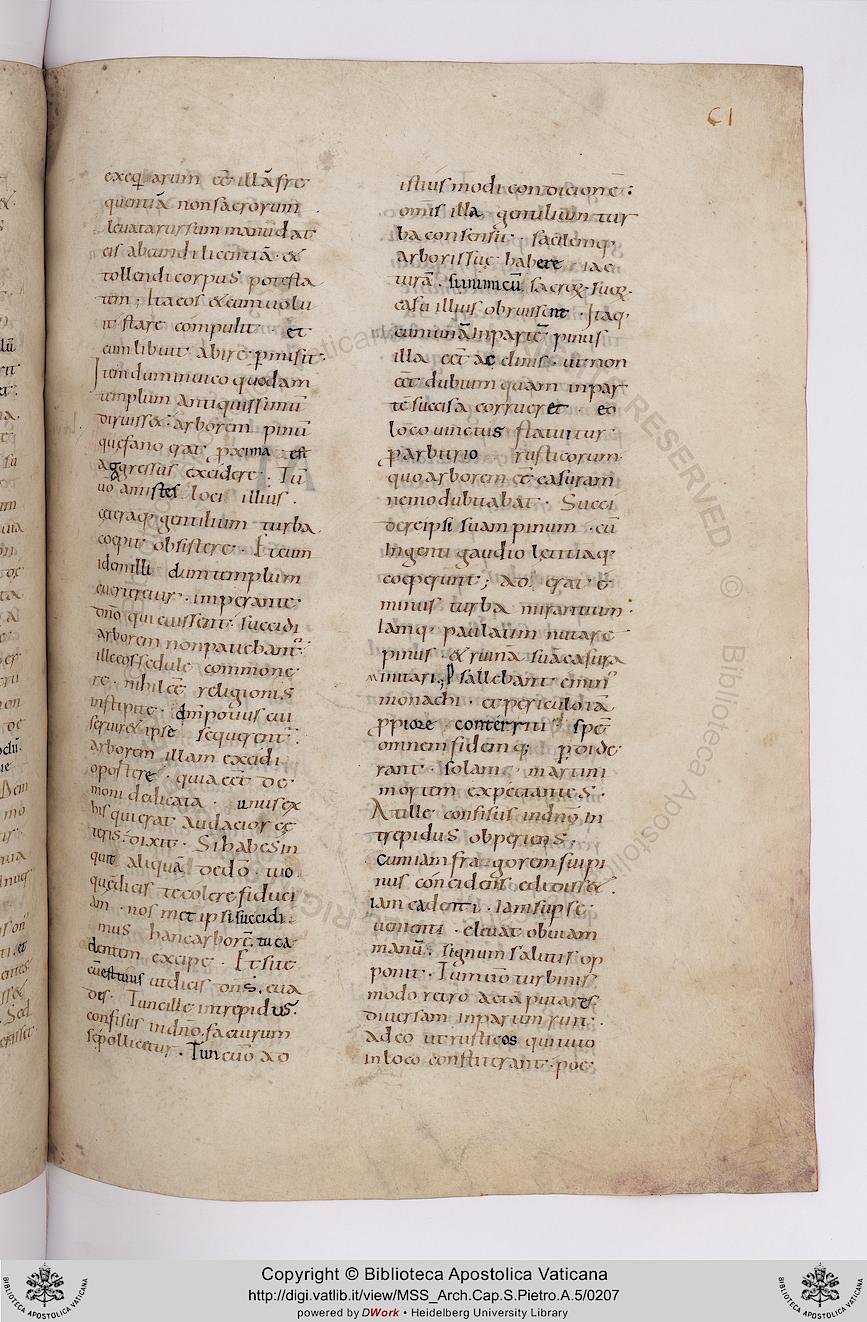 CI
exeq arum eē illā fre
quentiā non sacrorum .
leuata rursum manu dat
eis abeundi licentiā . &
tollendi corpus potesta
tem ; Ita eos & cum uolu
it stare compulit . et
cum libuit abire p̄misit .
Item dum in uico quodam
templum antiquissimū
diruiss& . arborem pinū
que fano erat proxima est
aggressus excidere . Tū
uo antistes loci illius .
ceteraq; gentilium turba
coepit obsistere . Et cum
idem illi dum templum
euerteretur . imperante
dn̄o quieuissent . succidi
arborem non patiebantur .
ille eos sedule commone
re . nihil eē religionis
in stipite . dm̄ potius cui
seruir& ipse sequerent .
arborem illam excidi
oportere . quia eēt de
moni dedicata . unus ex
his qui erat audacior ce
teris . dixit . Si habes in
quit aliquā de dō . tuo
quē dicis te colere fiduci
am . nos met ipsi succidi
mus hanc arborē . tu ca
dentem excipe . Et si te
cū est tuus ut dicis dn̄s . eua
des . Tunc ille intrepidus .
confisus in dn̄o . facturum
se pollicetur . Tunc uō ad
istius modi condicionē .
omīs illa gentilium tur
ba consensit . facilemq;
arboris suę habere iac
turā . si inimicū sacroꝝ suoꝝ
casu illius obruissent . Itaq;
cum unā in partē pinus
illa eēt acclinis . ut non
eēt dubium quam in par
tē succisa corruer& . eo
loco uinctus statuitur
p arbitrio rusticorum
quo arborem eē casuram
nemo dubitabat . Succi
dere ipsi suam pinum . cū
ingenti gaudio letitiaq;
coeperunt ; ad erat e
minus turba mirantium .
Iamq; paulatim nutare
pinus . & ruinā suā casura
minitari ;
monachi . et periculo iā
ꝓpiore conterriti spē
omnem fidemq; p̄dide
rant . solam martini
mortem expectantes .
At ille confisus in dn̄o in
trepidus opperiens .
cum iam fragorem sui pi
nus concidens edidiss& .
iam cadenti . iam sup se
uenienti . eleuat obuiam
manū . signum salutis op
ponit . Tum uō turbinis
modo retro acta putares
diuersam in partem ruit .
adeo ut rusticos qui tuto
in loco constiterant . poe
Copyright © Biblioteca Apostolica Vaticana
http://digi.vatlib.it/view/MSS_Arch.Cap.S.Pietro.A.5/0207
powered by DWork • Heidelberg University Library
BIBLIOTECA APOSTOLICA VATICANA
BIBLIOTECA APOSTOLICA VATICANA